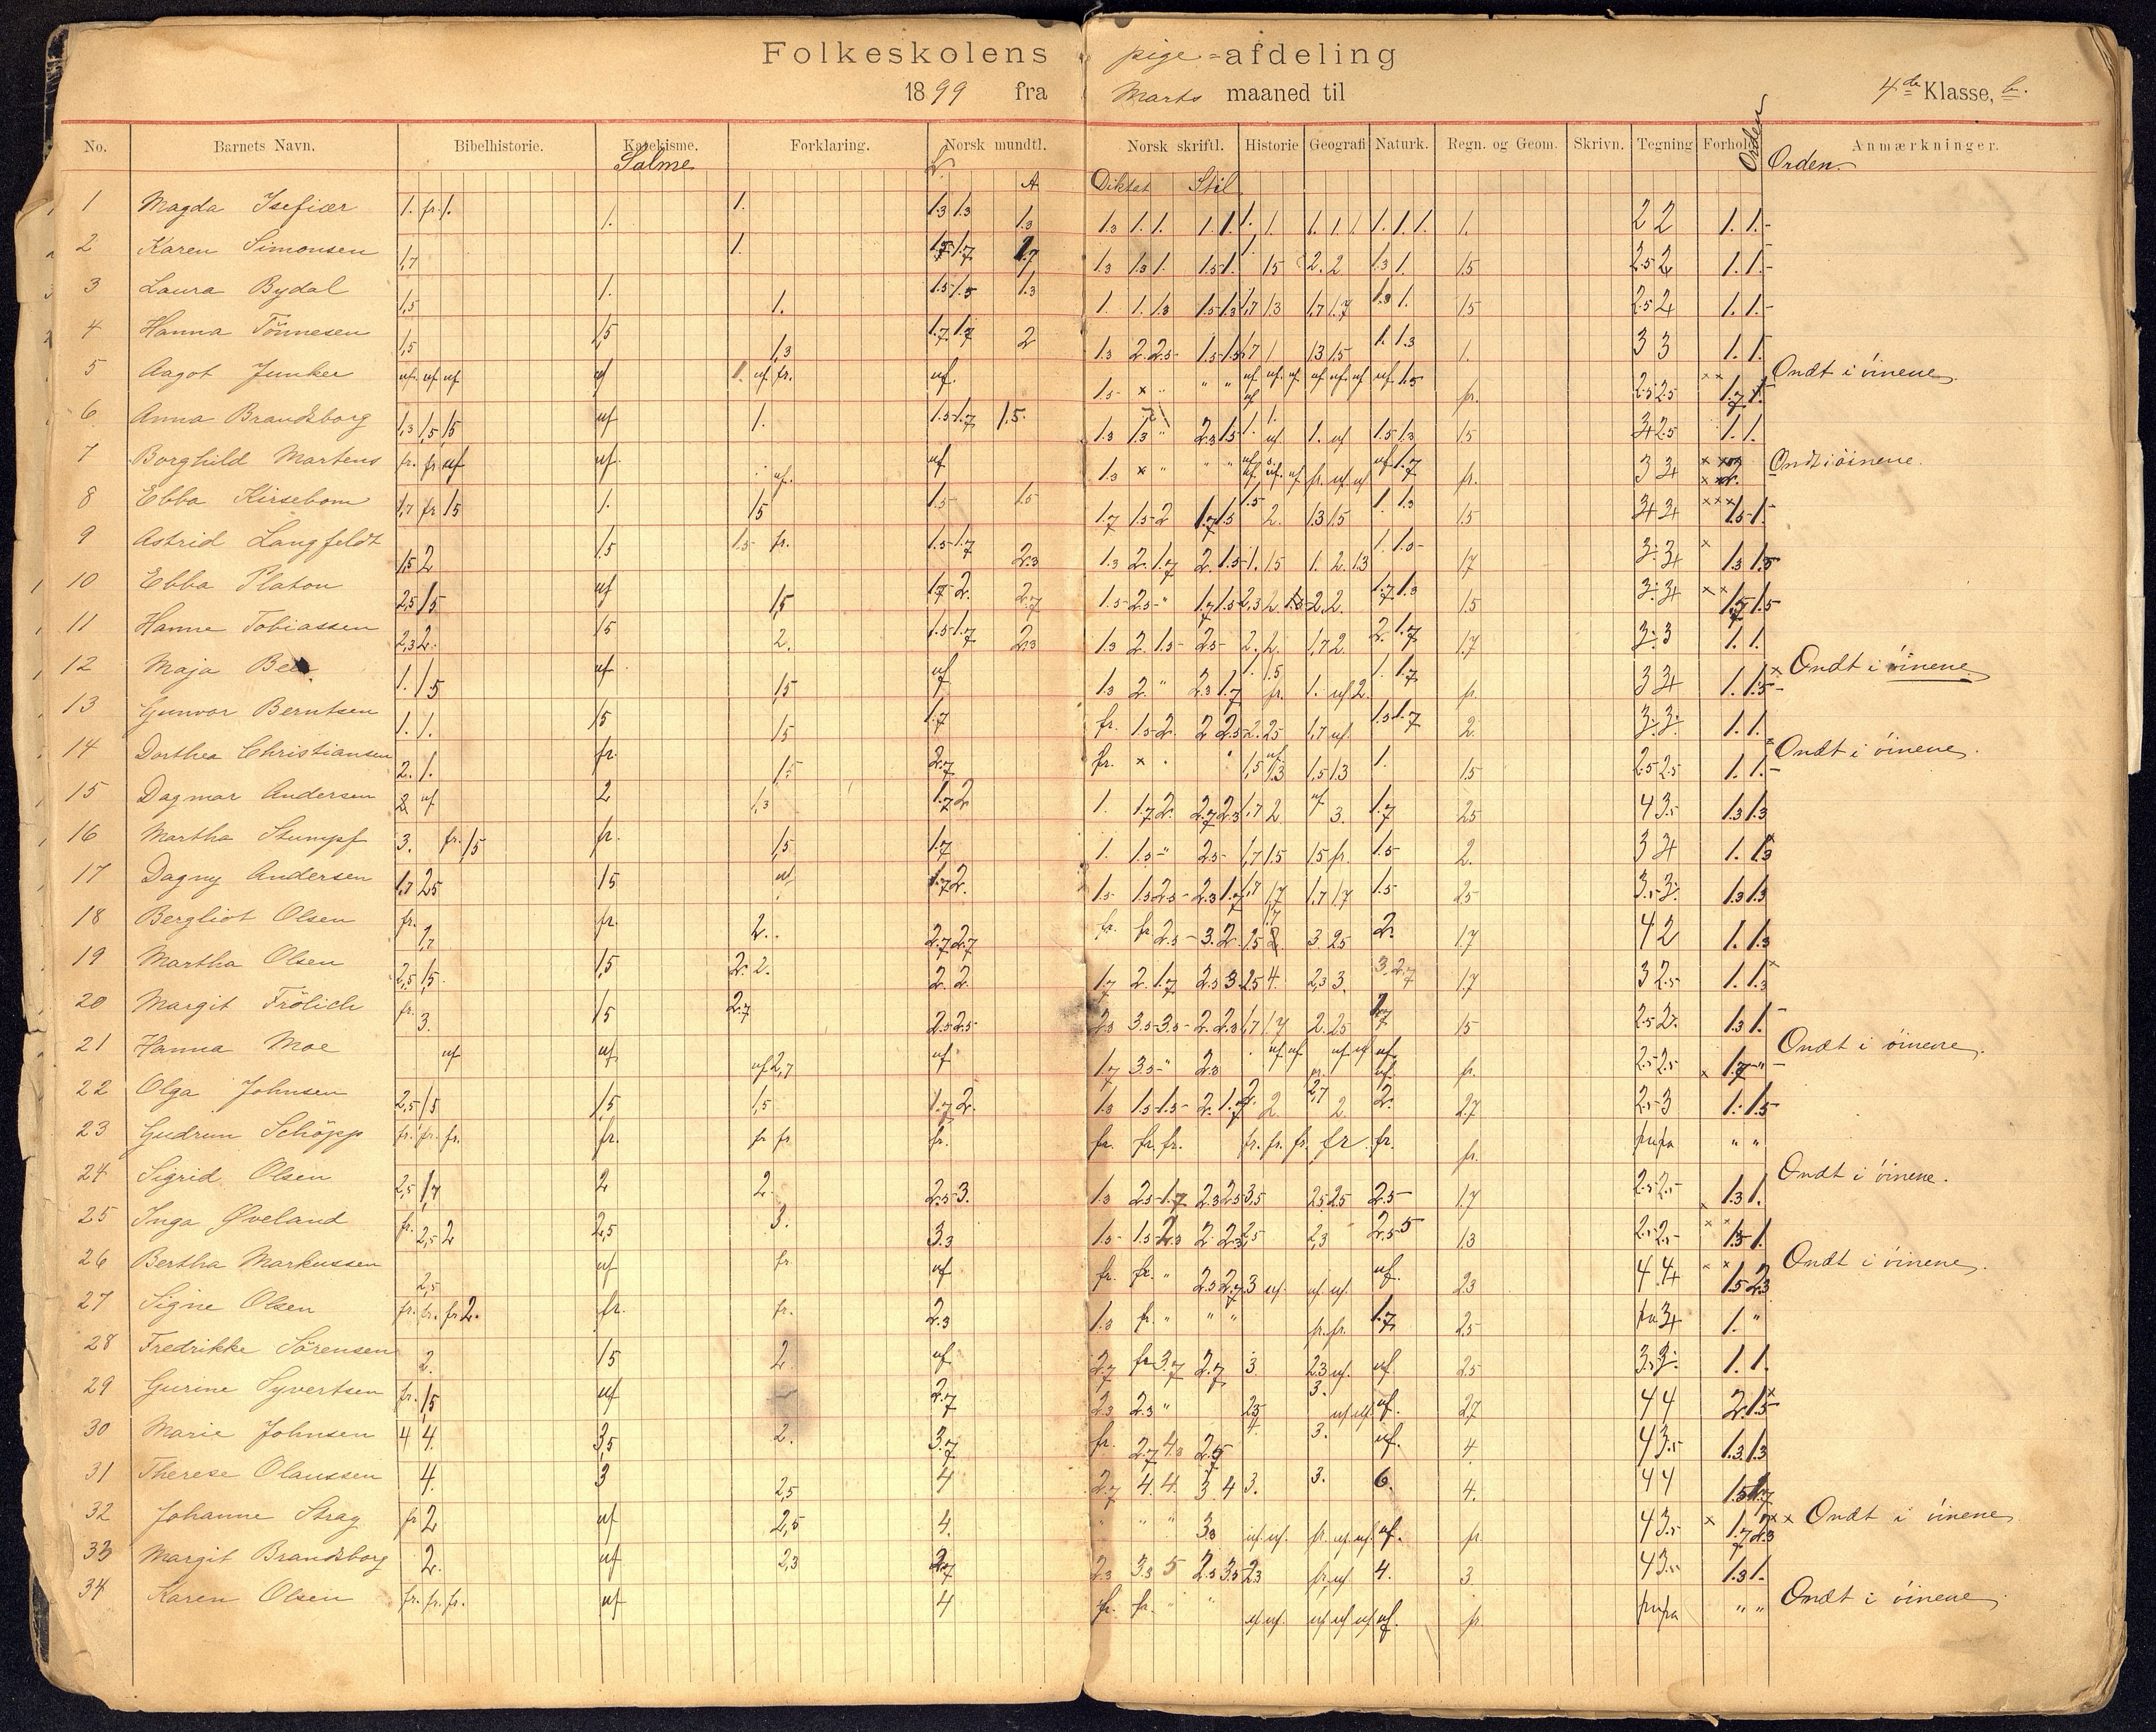 Folkeskolens pige-afdeling
1899 fra Marts maaned til 4de Klasse, b.
No. Barnets Navn. Bibelhistorie. Katekisme. Forklaring. Norsk mundtl. Norsk skriftl. Historie Geografi Naturk. Regn. og Geom. Skrivn. Tegning Forhold Orden Anmærkninger.
Salme L. A Diktat Stil Orden.
1 Magda Isefiær 1. fr. 1. 1. 1. 1.3 1.3 1.3 1.3 1. 1. 1. 1. 1. 1. 1. 1. 1. 1. 1. 1. 1. 2 2 1. 1.
2 Karen Simonsen 1,7 1. 1.7 1.7 1.3 1.3 1. 1.5 1. 1. 15 2. 2 1.3 1. 15 2.5 2 1. 1.
3 Laura Bydal 1,5 1. 1. 1.5 1.5 1.3 1. 1. 1.3 1.5 1.3 1,7 1.3 1,7 1.7 1.3 1. 15 2.5 2 1. 1.
4 Hanna Tönnesen 1,5 1,5 1,3 1.7 1.7 2 1.3 2. 2.5 1.5 1.5 1.7 1 1.3 1.5 1. 1.3 1. 3 3 1. 1.
5 Aagot Junker uf. uf uf uf 1. uf fr. uf. 1.5 × " " " uf uf. uf uf uf uf uf 1.5 fr. 2.5 2.5 × × 1.7 1. Ondt i öinene.
6 Anna Brandsborg 1,3 1,5 1,5 uf 1. 1.5 1.7 1.5. 1.3 1.3 " 2.3 1.5 1. 1. uf 1. uf 1.5 1.3 15 3 2.5 1. 1.
7 Borghild Martens fr. fr uf uf. uf. uf 1.3 × " " " uf uf. uf fr. uf uf uf 1.7 fr. 3 3 × × Ondt i öinene.
8 Ebba Kirsebom 1,7 fr 15 1. 15 1.5 1.5 1.7 1.5 2 1.7 1.5 1.5 2. 1.3 1.5 1. 1.3 15 3 3 × × × 1.5 1.
9 Astrid Langfeldt 1,5 2 1,5 1.5 fr. 1.5 1.7 2.3 1.3 2. 1.7 2. 1.5 1. 1.5 1. 2. 1.3 1. 1.5 17 3. 3 × 1.3 1.5
10 Ebba Platou 2,5 15 uf 1,5 1.7 2. 2.7 1.5 2.5 " 1.7 1.5 2,3 2. 2. 2. 1.7 1.3 15 3. 3 × × 1.7 1.5
11 Hanne Tobiassen 2,3 2. 15 2. 1.5 1.7 2.3 1.3 2. 1.5 2.5 2. 2. 1,7 2. 2. 1.7 17 3. 3 1. 1.
12 Maja Bee 1. 1.5 uf 1,5 uf 1.3 2. " 2.3 1.7 1. 1.5 fr. 1. uf 2. 1. 1.7 fr. 3 3 1. 1.5 × Ondt i öinene
13 Gunvor Berntsen 1. 1. 15 15 1.7 fr. 1.5 2. 2 2.5 2. 25 1,7 uf. 1.3 1.7 2. 3. 3. 1. 1.
14 Dorthea Christiansen 2. 1. fr. 1,5 2.7 fr. × " " 1,5 uf. 1.3 1,5 1.3 1. 15 2.5 2.5 1. 1. Ondt i öinene.
15 Dagmar Andersen 2 uf 2 1,3 1.7 2 1. 1.7 2. 2.7 2.3 1,7 2 uf 3. 1.7 25 4 3.5 1.3 1.3
16 Martha Stumpf 3. fr. 15 fr. 1,5 1.7 1. 1.5 " 2.5 1,7 1.5 15 fr. 1.5 2. 3 3 1. 1.3
17 Dagny Andersen 1,7 25 15 uf 1.7 2. 1.5 1.5 2.5 2.3 1.7 1,7 1,7 1,7 1,7 1.5 25 3.5 3. 1.3 1.3
18 Bergliot Olsen fr. 1,7 fr. 2. 2.7 2.7 fr. fr 2.5 3. 2. 15 1.7 3. 25 2. 17 4 2 1. 1.3
19 Martha Olsen 2,5 1,5 1,5 2. 2. 2. 2. 1.7 2. 1.7 2.3 3. 25 4. 2,3 3. 3. 2.7 17 3 2.5 1. 1.3 ×
20 Margit Frölich fr. 3. 15 2.7 2.5 2.5 2.3 3.5 3.5 2. 2.3 1,7 17 2. 25 1.7 15 2.5 2. 1.3 1.
21 Hanna Moe uf uf uf 2,7 uf 1.7 3.5 " 2.3 uf uf uf uf uf. uf. fr. 2.5 2.5 × 1.7 " Ondt i öinene.
22 Olga Johnsen 2,5 15 1,5 1,5 1.7 2. 1.3 1.5 1.5 2. 1.7 2. 2 2,7 2. 2. 27 2.5 3 1. 1.5
23 Gudrun Schöpp fr. fr. fr. fr. fr fr fr. fr. fr. fr. fr. fr. fr. fr fr. fr. fra fra " "
24 Sigrid Olsen 2,5 1,7 2 2. 2.5 3. 1.3 2.5 1.7 2.3 2.5 3,5 25 25 2.5 17 2.5 2.5 × 1.3 1. Ondt i öinene.
25 Inga Øveland fr. 2,5 2 2,5 3. 3.3 1.5 1.5 2.3 2. 2.3 2,5 2,3 2.5 5 13 2.5 2.5 × × 1.5 1.
26 Bertha Markussen 2,5 uf fr. uf fr. fr. " 2.3 2.7 3 uf. uf uf. uf. 23 4 4 × × 1.5 2.3 Ondt i öinene.
27 Signe Olsen fr. fr. fr 2. fr. fr. 2.3 1.3 fr. " " " fr. fr. 1.7 25 fra 3 1. "
28 Fredrikke Sörensen 2. 15 2 uf 2.7 fr 3.7 2.7 3 2.3 uf. uf 25 3.5 3. 1. 1.
29 Gurine Syvertsen fr. 1,5 uf 2.7 2.3 2.3 " 23 3. uf uf. uf. 27 4 4 2. 1.5 ×
30 Marie Johnsen 4 4. 3,5 2. 3.7 fr. 2.7 4.3 2.5 4. 3. uf. 4. 4 3.5 1.3 1.3
31 Therese Olaussen 4. 3 2,5 4 2.7 4. 4. 3. 4 3. 3. 6. 4. 4 4 1.5 1.7
32 Johanne Stray fr 2 uf 2,5 4. " " " 3.3 uf. uf. fr. uf. uf. uf. fr 4 3.5 × 1.7 2.3 × × Ondt i öinene
33 Margit Brandsborg 2. uf 2,3 2.7 2.3 3.3 5 2.3 3.5 2.3 fr. uf 4. 3. 4 3.5 1.3 1.
34 Karen Olsen fr. fr. fr. uf 4 fr. fr. " " uf uf. uf uf uf uf. fr. fra fra " " Ondt i öinene.